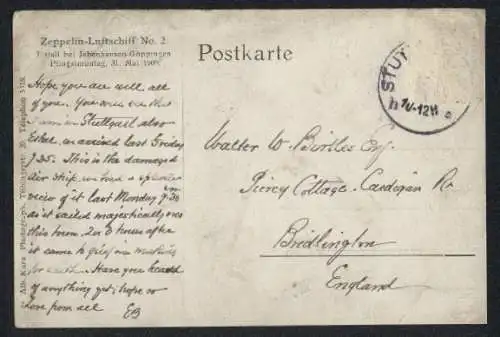 Zeppelin-Luftschiff No. 2
Unfall bei Jebenhausen-Göppingen
Pfingstmontag, 31. Mai 1909
Postkarte
STUT
10-12
Hope you are well all
of you. You will see that
I am in Stuttgart also
Ethel, we arrived last Friday
7.35. This is the damaged
Air ship, we had a splendid
view of it last Monday 9.30
as it sailed majestically over
this town. 2 or 3 hours after
it came to grief
Have you heard
of anything yet, hope so
Love from all EB
Walter W. Birtles Esq.
Piercy Cottage. Cardigan Rd
Bridlington
England
Alb. Karz Photograph, Tübingerstr. 20. Telephon